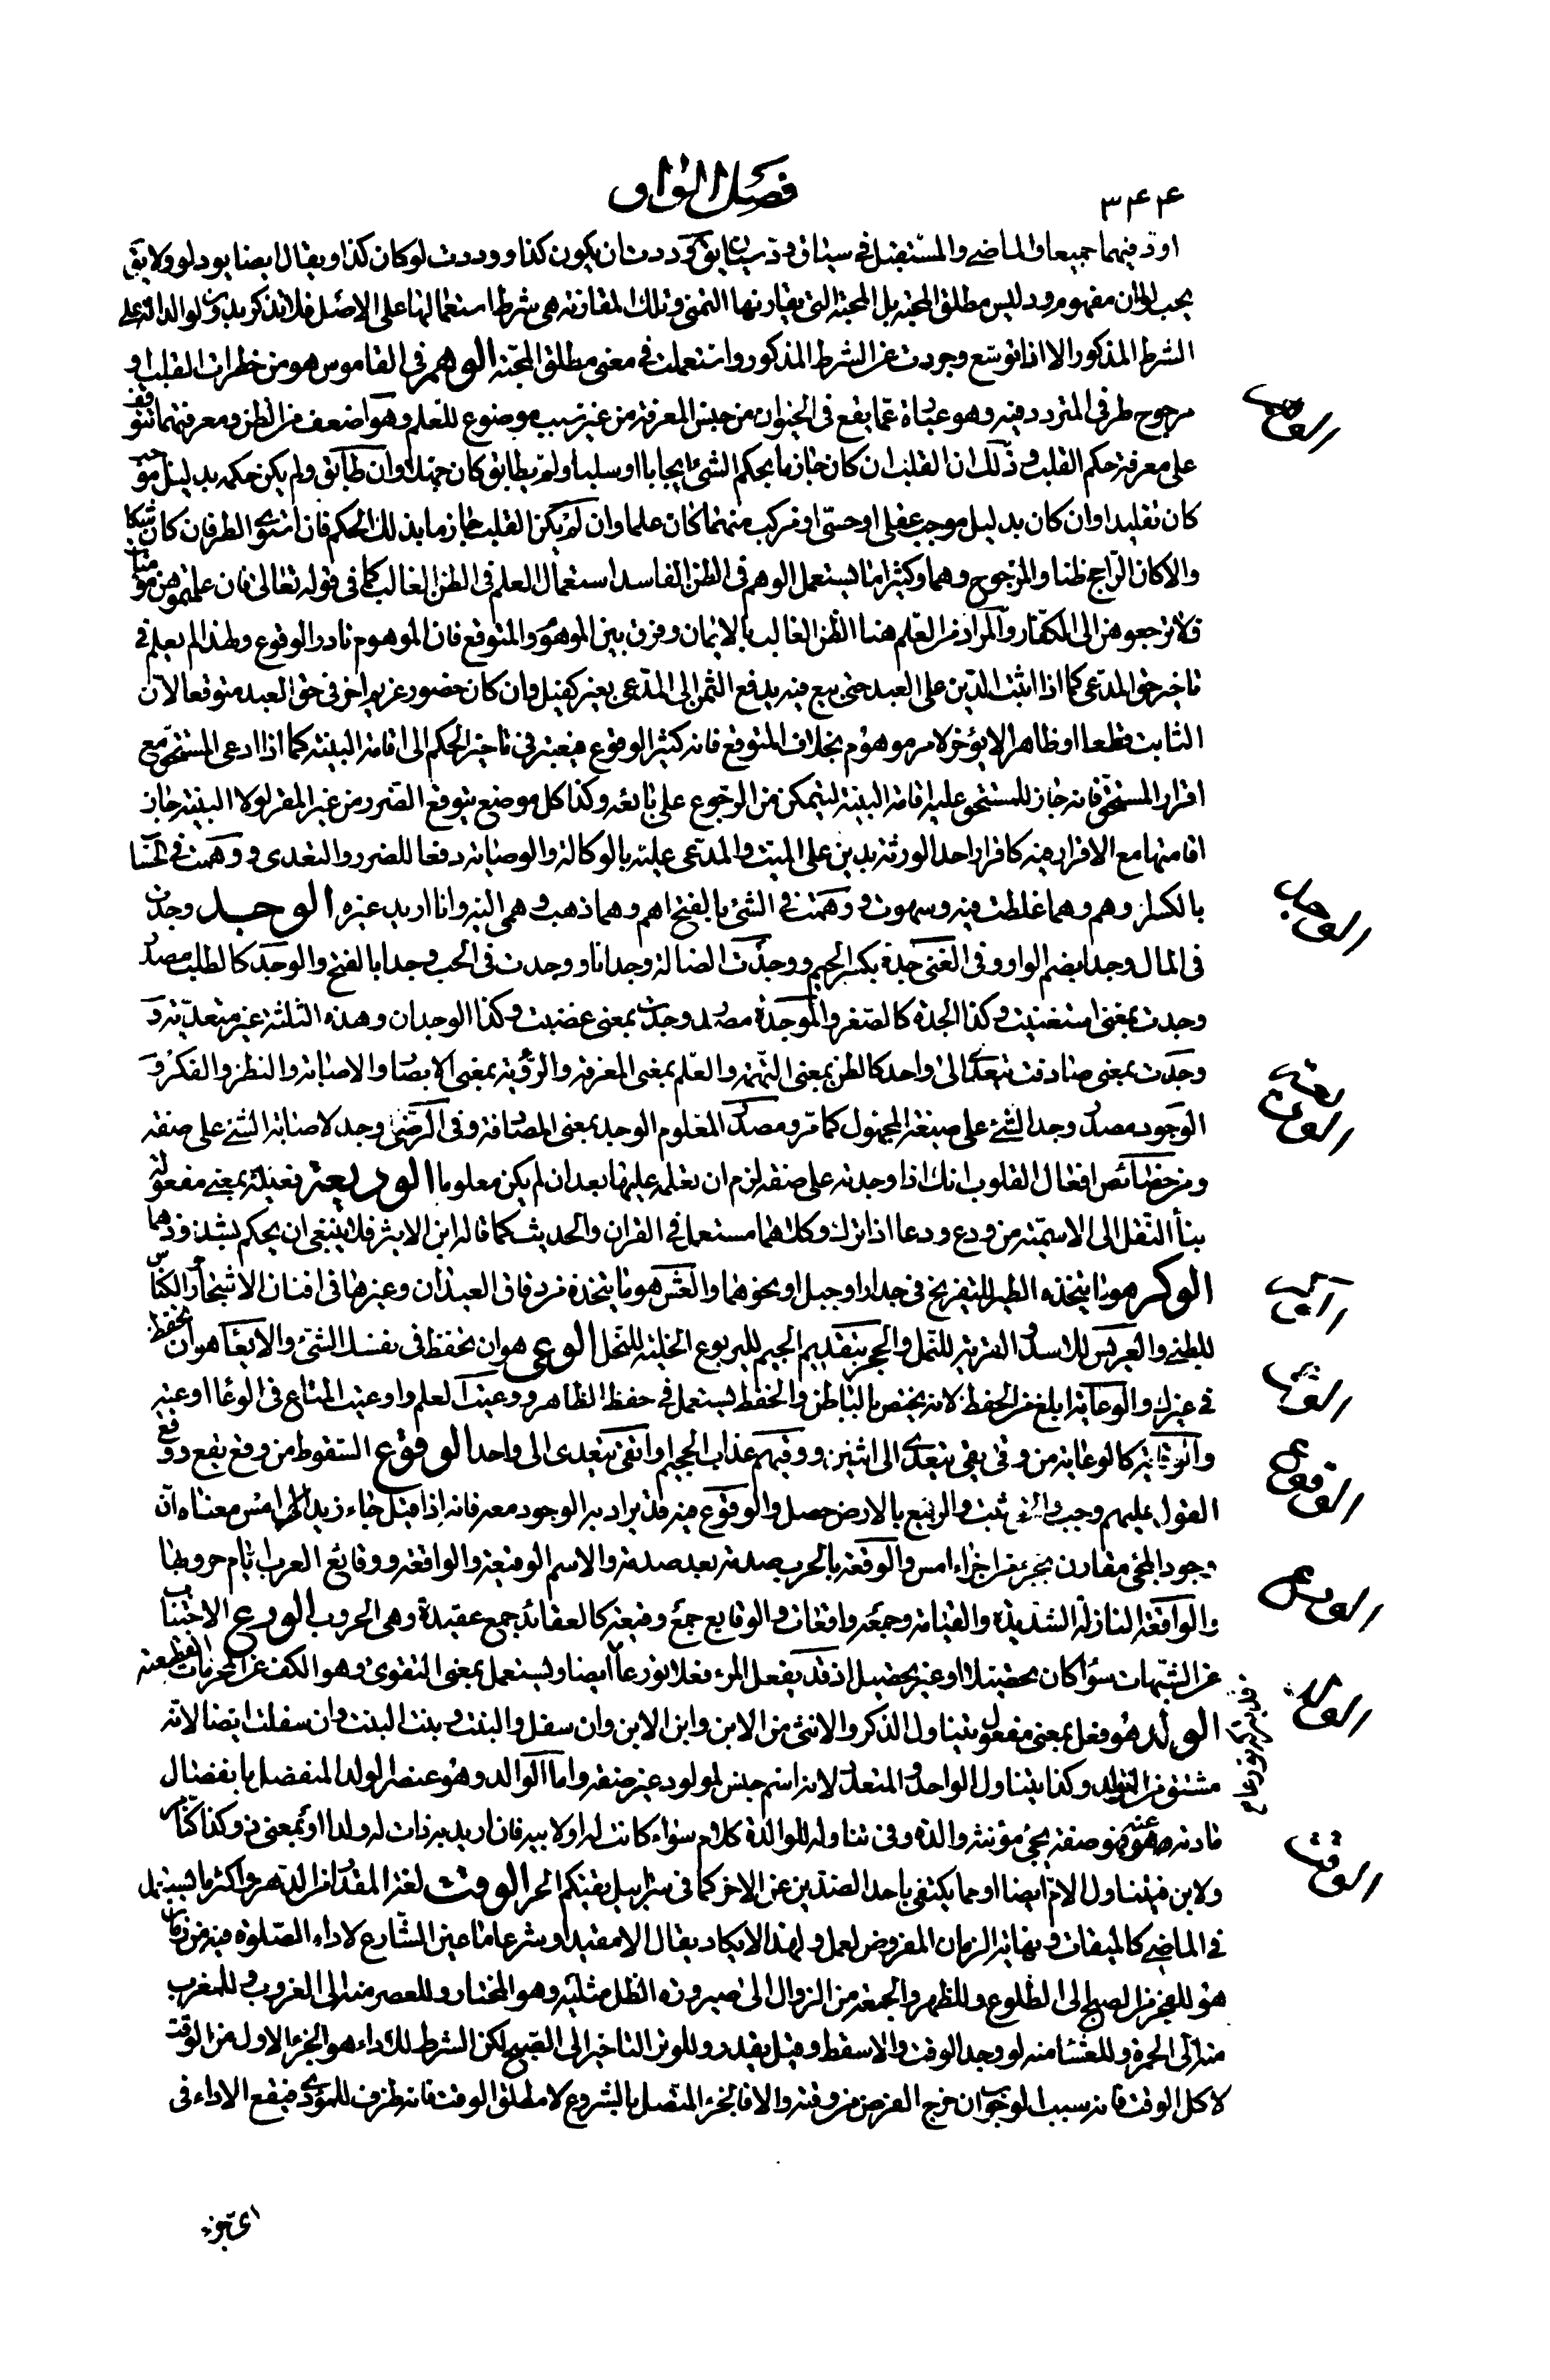 ٣٤٤
فصل الواو
او ود فيهما جميعا والماضي والمستقبل في سياق ود سيان يق وددت ان يكون كذا ووددت لو كان كذا ويقال ايضا يود لو ولا يق
يحب لو لان مفهوم ود ليس مطلق المحبة بل المحبة التي يقارنها التمني وتلك المقارنة هي شرط استعمالها على الاصل فلا تذكر بدون لو الدالة على
الشرط المذكور الا اذا توسع وجردت عن الشرط المذكور واستعملت في معنى مطلق المحبة الوهم في القاموس هو من خطرات القلب او
مرجوح طرفي المتردد فيه وهو عبارة عما يقع في الحيوان من جنس المعرفة من غير سبب موضوع للعلم وهو اضعف من الظن ومعرفتهما تتوقف
على معرفة حكم القلب وذلك ان القلب ان كان جازما بحكم الشئ ايجابا او سلبا ولم يطابق كان جهلا وان طابق ولم يكن حكمه بدليل موجب
كان تقليدا وان كان بدليل موجب عقلي او حسي او مركب منهما كان علما وان لم يكن القلب جازما بذلك الحكم فان استوى الطرفان كان شكا
والا كان الراجح ظنا والمرجوح وهما وكثيرا ما يستعمل الوهم في الظن الفاسد استعمال العلم في الظن الغالب كما في قوله تعالى فان علمتموهن مؤمنات
فلا ترجعوهن الى الكفار والمراد من العلم هنا الظن الغالب بالايمان وفرق بين الموهوم والمتوقع فان الموهوم نادر الوقوع ولهذا لم يعلم في
تاخير حق المدعي كما اذا اثبت الدين على العبد حتى بيع فيه يدفع الثمن الى المدعي بغير كفيل وان كان حضور غريم اخر في حق العبد متوقعا لان
الثابت قطعا او ظاهرا لا يؤخر لامر موهوم بخلاف المتوقع فانه كثير الوقوع فيعتبر في تاخير الحكم الى اقامة البينة كما اذا ادعى المستحق مع
اقرار المستحق فانه جاز للمستحق عليه اقامة البينة ليتمكن من الرجوع على بائعه وكذا كل موضع يتوقع الضرر من غير المقر لولا البينة جاز
اقامتها مع الاقرار فيه كاقرار احد الورثة بدين على الميت والمدعى عليه بالوكالة والوصاية دفعا للضرر والتعدي و وهمت في الحساب
بالكسر اوهم وهما غلطت فيه وسهوت و وهمت في الشئ بالفتح اهم وهما ذهب وهمي اليه وانا اريد غيره الوجد وجدت
في المال وجدا بضم الواو وفي الغنى جدة بكسر الجيم ووجدت الضالة وجدانا ووجدت في الحب وجدا بالفتح والوجد كالطلب مصدر
وجدت بمعنى استغنيت وكذا الجدة كالصغر والموجدة مصدر وجدت بمعنى غضبت وكذا الوجدان وهذه الثلثة غير متعدية و
وجدت بمعنى صادفت تتعدى الى واحد كالظن بمعنى التهمة والعلم بمعنى المعرفة والرؤية بمعنى الابصار والاصابة والنظر والفكر و
الوجود مصدر وجد الشئ على صيغة المجهول كما مر ومصدر المعلوم الوجد بمعنى المصادفة وفي الرضي وجد لاصابة الشئ على صفة
ومن خصائص افعال القلوب انك اذا وجدته على صفة لزم ان تعلمه عليها بعد ان لم يكن معلوما الوديعة فعيلة بمعنى مفعولة
بتاء النقل الى الاسمية من ودع ودعا اذا ترك وكلاهما مستعمل في القران والحديث كما قاله ابن الاثير فلا ينبغي ان يحكم بشذوذهما
الوكر هو ما يتخذه الطير للتفريخ في جدار او جبل او نحوهما والعش هو ما يتخذه من دقاق العيدان وغيرها في افنان الاشجار والكناس
للظبي والعريس للاسد والقرية للنمل والجحر بتقديم الجيم لليربوع الخلية للنحل الوعي هو ان تحفظ في نفسك الشئ والايعاء هو ان تحفظ
في غيرك والوعاية ابلغ من الحفظ لانه يختص بالباطن والحفظ يستعمل في حفظ الظاهر ووعيت العلم واوعيت المتاع في الوعاء اوعيه
والوقاية كالوعاية من وقى يقي يتعدى الى اثنين ووقيهم عذاب الجحيم واتقى يتعدى الى واحد الوقوع السقوط من وقع يقع ووقع
القول عليهم وجب والحق ثبت والربيع بالارض حصل والوقوع فيه قد يراد به الوجود معه فانه اذا قيل جاء زيد امس معناه ان
وجود المجئ مقارن بجزء من اجزاء امس والوقعة بالحرب صدمة بعد صدمة والاسم الوقيعة والواقعة ووقائع العرب ايام حروبها
والواقعة النازلة الشديدة والقيامة وجمعه واقعات والوقايع جمع وقيعة كالعقائد جمع عقيدة وهي الحروب الورع الاجتناب
عن الشبهات سواء كان تحصيلا او غير تحصيل اذ قد يفعل المرء فعلا تورعا ايضا ويستعمل بمعنى التقوى وهو الكف عن المحرمات القطعية
الولد هو فعل بمعنى مفعول يتناول الذكر والانثى من الابن وابن الابن وان سفل والبنت وبنت البنت وان سفلت ايضا لانه
مشتق من التولد وكذا يتناول الواحد والمتعدد لانه اسم جنس لمولود غير صفة واما الوالد وهو عنصر الولد المنفصل بانفصال
مادته عنه فهو صفة يجئ مؤنثه والدة وفي تناوله للوالدة كلام سواء كانت له اولا بيد فان اريد به ذات له ولد او بمعنى ذو كذا كتامر
ولابن فيتناول الام ايضا او مما يكتفي باحد الضدين عن الاخر كما في سرابيل تقيكم الحر الوقت لغة المقدار من الدهر واكثر ما يستعمل
في الماضي كالميقات ونهاية الزمان المفروض لعمل ولهذا لا يكاد يقال الا مقيدا وشرعا ما عين الشارع لاداء الصلوة فيه من زمان
هو للفجر من الصبح الى الطلوع وللظهر والجمعة من الزوال الى صيرورة الظل مثليه وهو المختار وللعصر منه الى الغروب وللمغرب
منه الى الحمرة وللعشاء منه لو وجد الوقت والا سقط وقيل يقدر وللوتر التاخير الى الصبح لكن الشرط للاداء هو الجزء الاول من الوقت
لا كل الوقت فانه سبب الوجوب ان خرج الفرض من وقته والا فالجزء المتصل بالشروع لا مطلق الوقت فانه ظرف للمؤدى فيقع الاداء في
الوجد
الوديعة
الوقوع
الورع
الولد
الوقت